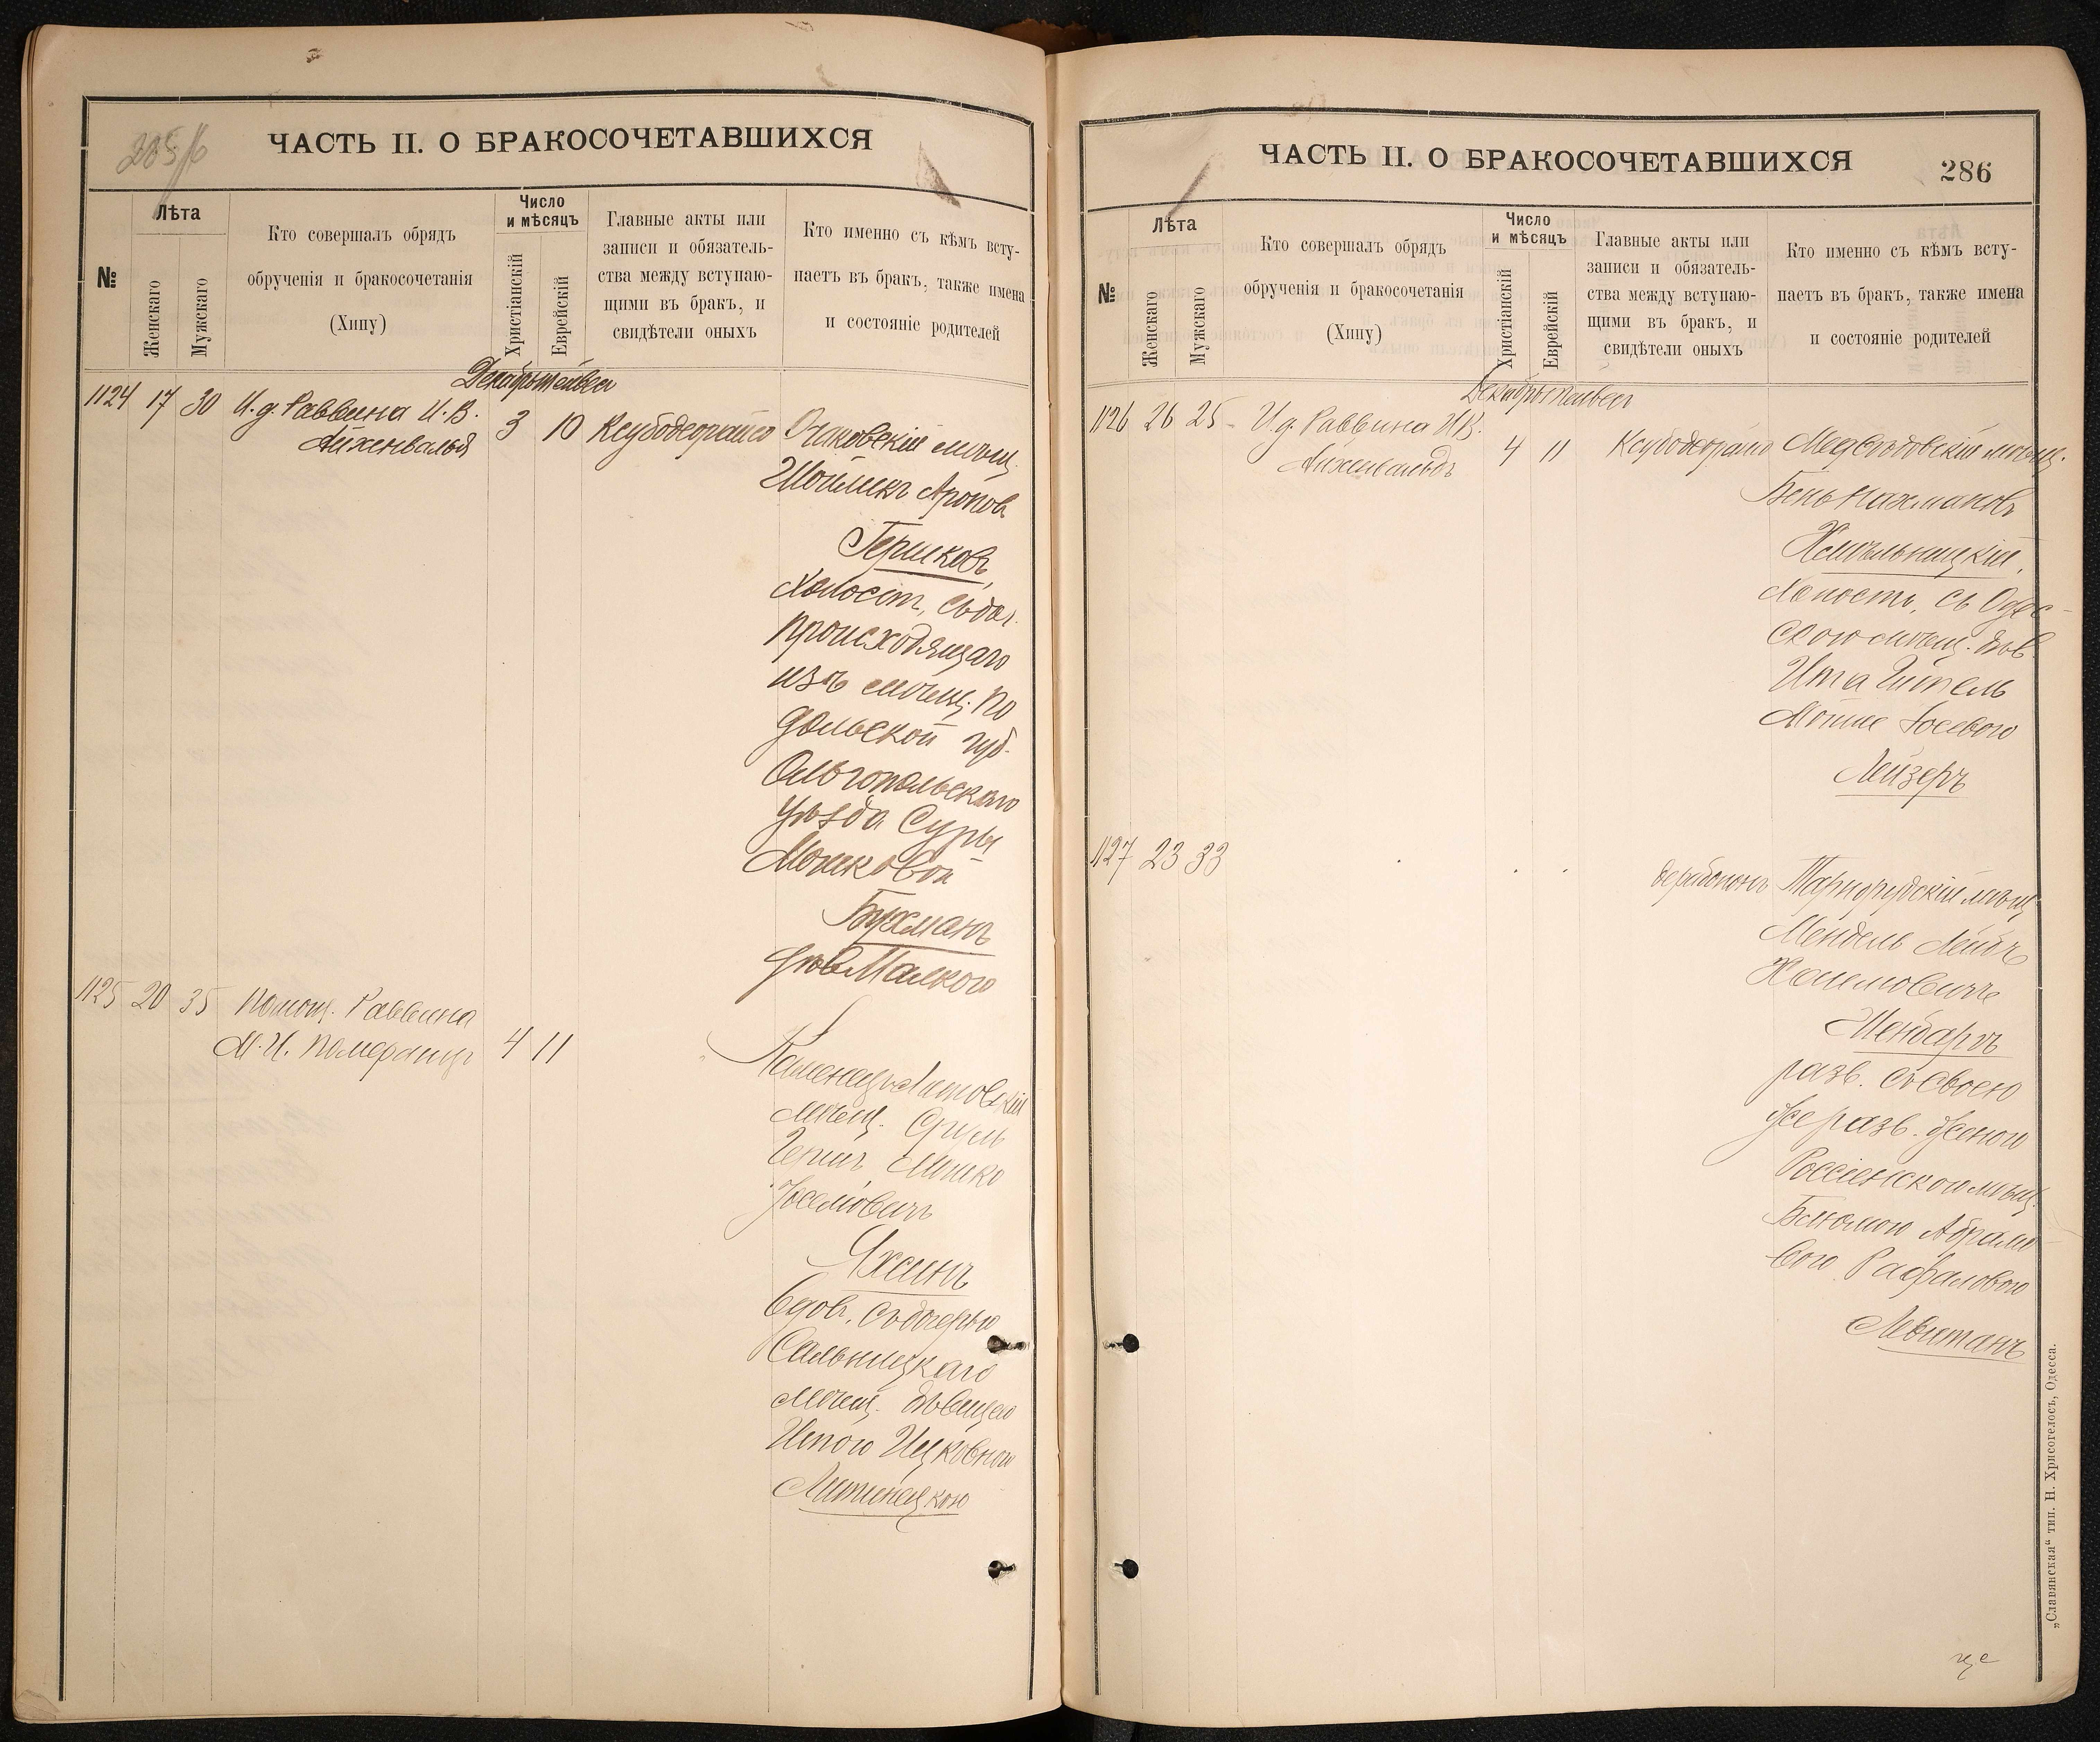 285/б
ЧАСТЬ II. О БРАКОСОЧЕТАВШИХСЯ
№
Лѣта
Женскаго
Мужскаго
Кто совершалъ обрядъ
обрученія и бракосочетанія
(Хипу)
Число
и мѣсяцъ
Христіанскій
Еврейскій
Главные акты или
записи и обязатель-
ства между вступаю-
щими въ бракъ, и
свидѣтели оныхъ
Кто именно съ кѣмъ всту-
паетъ въ бракъ, также имена
и состояніе родителей
1124 17 30 И.д. Раввина И.В.
Айхенвальд
3 10 Ксубодеорайсо Очаковскій мѣщ.
Шойликъ Аронов
Гершковъ,
Холостъ, съ доч.
происходящаго
изъ мѣщ. По
дольской губ.
Ольгопольскаго
уѣзда Суры
Мошковой
Бухманъ
1125 20 35 Помощ. Раввина
М.И. Померанцъ 4 11
Каменецъ-Литовскій
мѣщ. Сруль
Гершъ Мошко
Іоселіовичъ
Яхсинъ
вдов. съ дочерью
Сальницкаго
мѣщ. дѣвицею
Ицковною
Литинецкою
ЧАСТЬ II. О БРАКОСОЧЕТАВШИХСЯ
286
№
Лѣта
Женскаго
Мужскаго
Кто совершалъ обрядъ
обрученія и бракосочетанія
(Хипу)
Число
и мѣсяцъ
Христіанскій
Еврейскій
Главные акты или
записи и обязатель-
ства между вступаю-
щими въ бракъ, и
свидѣтели оныхъ
Кто именно съ кѣмъ всту-
паетъ въ бракъ, также имена
и состояніе родителей
1126 26 25 И.д. Раввина И.В.
Айхенвальдъ 4 11 Ксубодеорайсо Медвѣдовскій мѣщ.
Бень Нахмановъ
Хмѣльницкій,
Холостъ, съ Одес-
скою мѣщ. дѣв.
Ита Гитель
Мошке Іосевою
Лейзеръ
1127 23 33
дерабононъ Тарнорудскій мѣщ.
Мендель Лейбъ
Хаимовичъ
Жендаръ
разв. съ своею
же разв. женою
Россіенскою мѣщ.
Блюмою Абрамо
вою Рафаловою
Левитанъ
„Славянская“ тип. Н. Хрисогелосъ, Одесса.